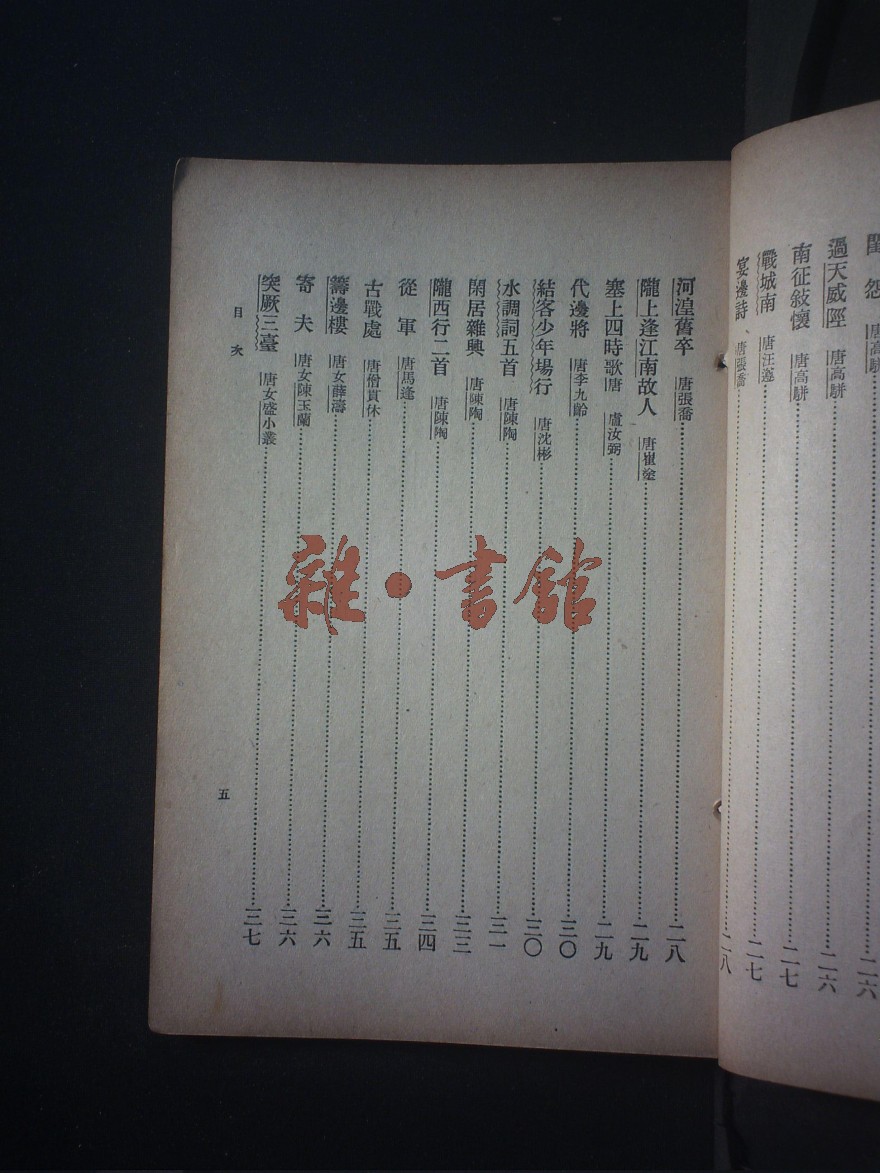 怨 唐高駢……二六
過天威脛 唐高駢……二六
南征敍懷 唐高駢……二七
戰城南 唐汪遵……二七
宴邊詩 唐張喬……二八
河湟舊卒 唐張喬……二八
隴上逢江南故人 唐崔塗……二九
塞上四時歌唐 盧汝弼……二九
代邊將 唐李九齡……三〇
結客少年場行 唐沈彬……三〇
水調詞五首 唐陳陶……三一
閑居雜興 唐陳陶……三三
隴西行二首 唐陳陶……三四
從軍 唐馬逢……三五
古戰處 唐僧貫休……三五
籌邊樓 唐女薛濤……三六
寄夫 唐女陳玉蘭……三六
突厥三臺 唐女盛小叢……三七
目次
五
雜·書館